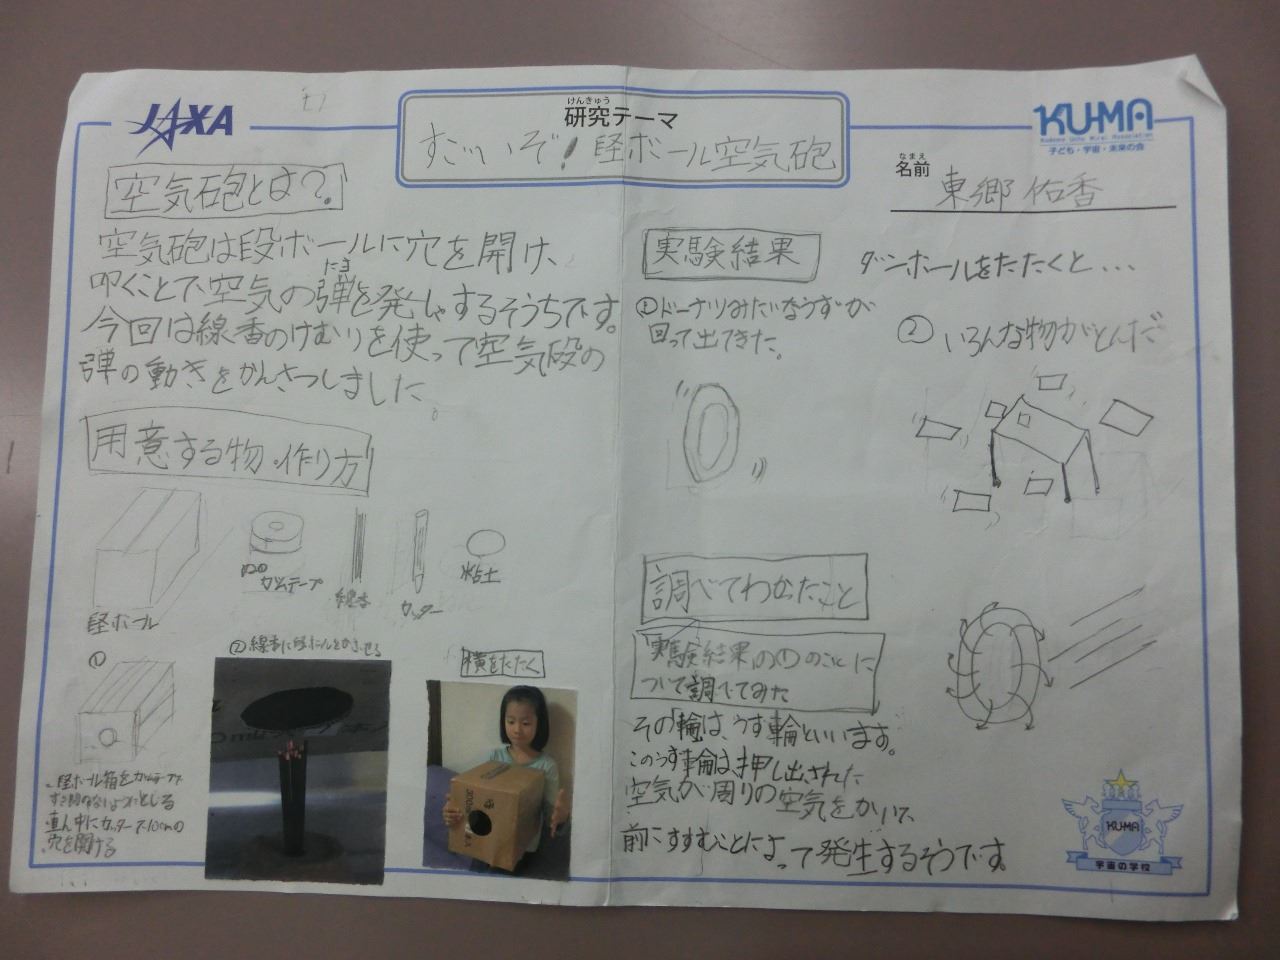 JAXA
けんきゅう
研究テーマ
すごいぞ! 段ボール空気砲
KU-MA
Kodomo Uchu Mirai Association
子ども・宇宙・未来の会
なまえ
名前
東郷 佑香
空気砲とは?
空気砲は段ボールに穴を開け、
たま
叩くことで空気の弾を発しゃするそうちです。
今回は線香のけむりを使って空気砲の
弾の動きをかんさつしました。
用意する物・作り方
段ボール
ガムテープ
線香
カッター
粘土
①
段ボール箱をガムテープで
すき間のないようにとじる
真ん中にカッターで10cmの
穴を開ける
②線香に段ボールをかぶせる
横をたたく
実験結果
ダンボールをたたくと...
①ドーナツみたいなうずが
回って出てきた。
② いろんな物がとんだ
調べてわかったこと
実験結果の①のことに
ついて調べてみた
その輪は、うず輪といいます。
このうず輪は押し出された
空気が周りの空気をかいて、
前にすすむことによって発生するそうです。
KU-MA
宇宙の学校